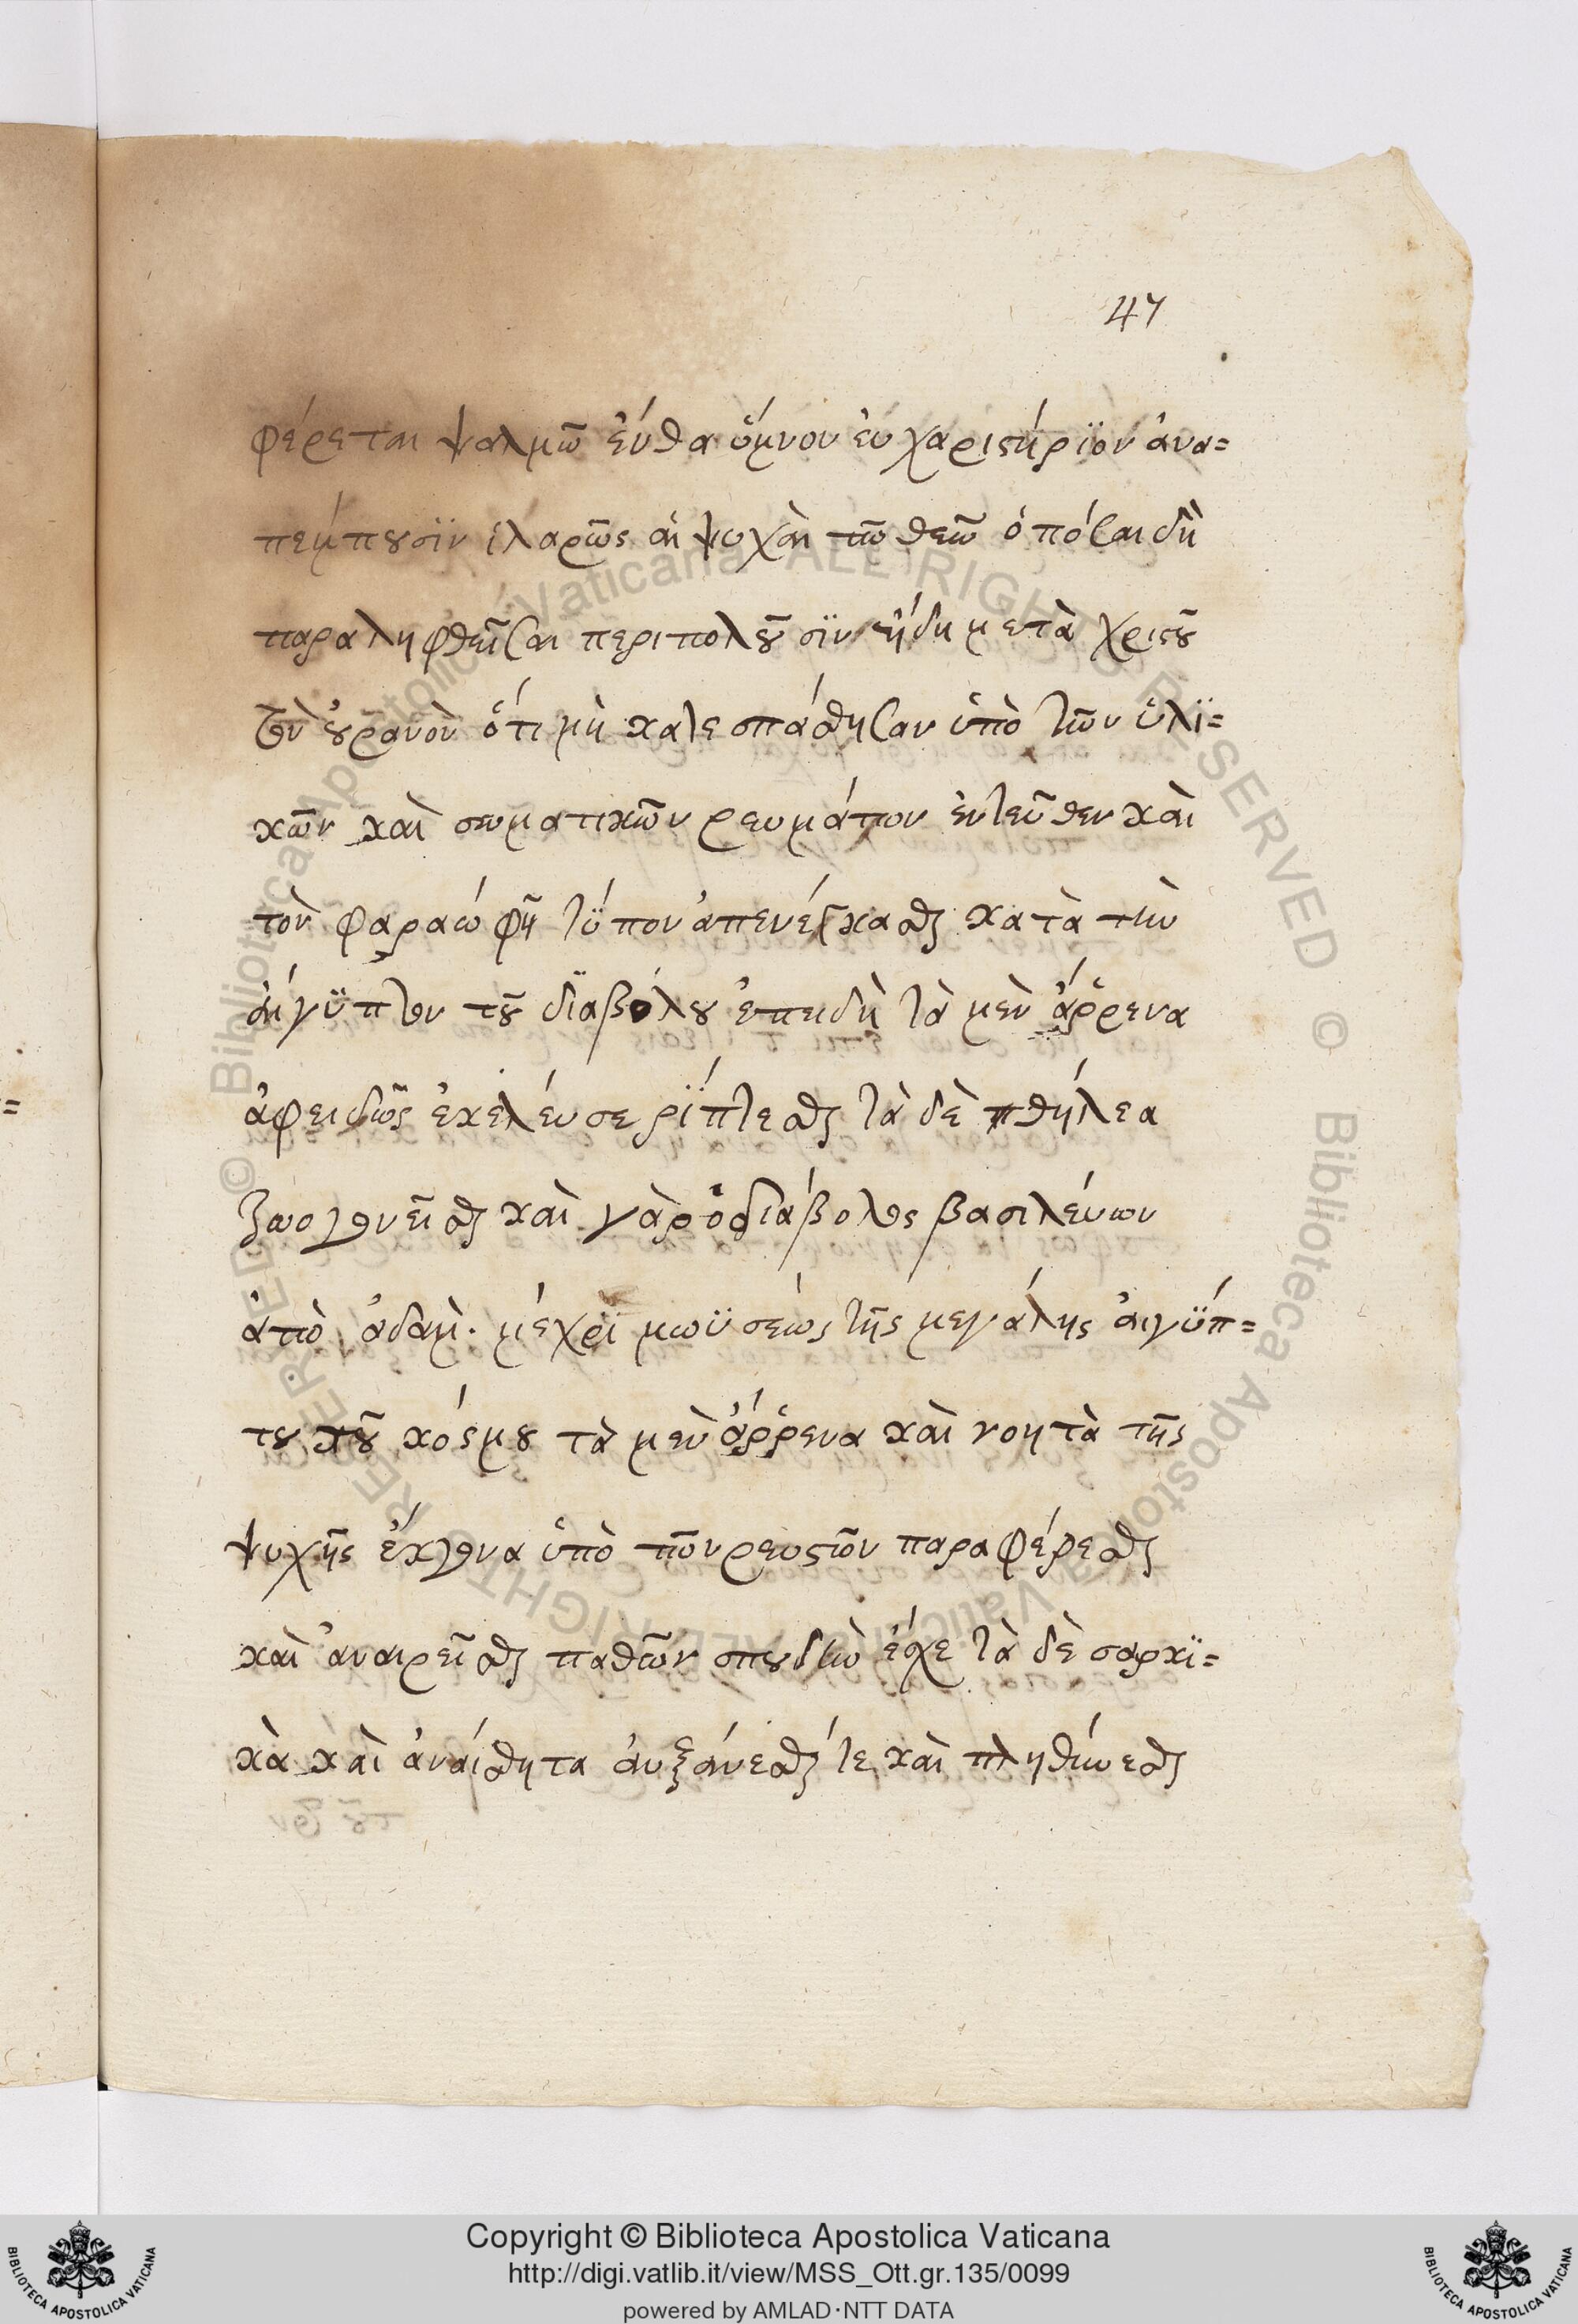 47
φέρεται ψαλμῶ ἔνθα ὕμνον εὐχαριστήρϊον ἀνα=
πέμπουσϊν ἱλαρῶς αἱ ψυχαὶ τῶ θεῶ ὁπόσαι δὴ
παραληφθεῖσαι περιπολοῦσϊν ἤδη μετὰ χριστοῦ
τὸν οὐρανὸν ὅτι μὴ κατεσπάσθησαν ὑπὸ τῶν ὑλϊ=
κῶν καὶ σωματικῶν ρευμάτων ἐντεῦθεν καὶ
τὸν φαραώ φῆ τύπον ἀπενέγκασθαι κατὰ τὴν
αἴγϋπτον τοῦ δϊαβόλου ἐπειδὴ τὰ μὲν ἄρρενα
ἀφειδῶς ἐκέλευσε ρίπτεσθαι τὰ δὲ θήλεα
ζωογονεῖσθαι καὶ γὰρ ὁ διάβολος βασιλεύων
ἀπὸ ἀδὰμ· μέχρϊ μωϋσέως τῆς μεγάλης αἰγϋπ=
του τοῦ κόσμου τὰ μὲν ἄρρενα καὶ νοητὰ τῆς
ψυχῆς ἔκγονα ὑπὸ τῶν ρευστῶν παραφέρεσθαι
καὶ ἀναιρεῖσθαι παθῶν σπουδὴν ἔσχε τὰ δὲ σαρκϊ=
κὰ καὶ ἀναίσθητα αὐξάνεσθαί τε καὶ πληθύνεσθαι
Copyright © Biblioteca Apostolica Vaticana
http://digi.vatlib.it/view/MSS_Ott.gr.135/0099
powered by AMLAD·NTT DATA
BIBLIOTECA APOSTOLICA VATICANA
BIBLIOTECA APOSTOLICA VATICANA
© Biblioteca Apostolica Vaticana ALL RIGHTS RESERVED © Biblioteca Apostolica Vaticana ALL RIGHTS RESERVED